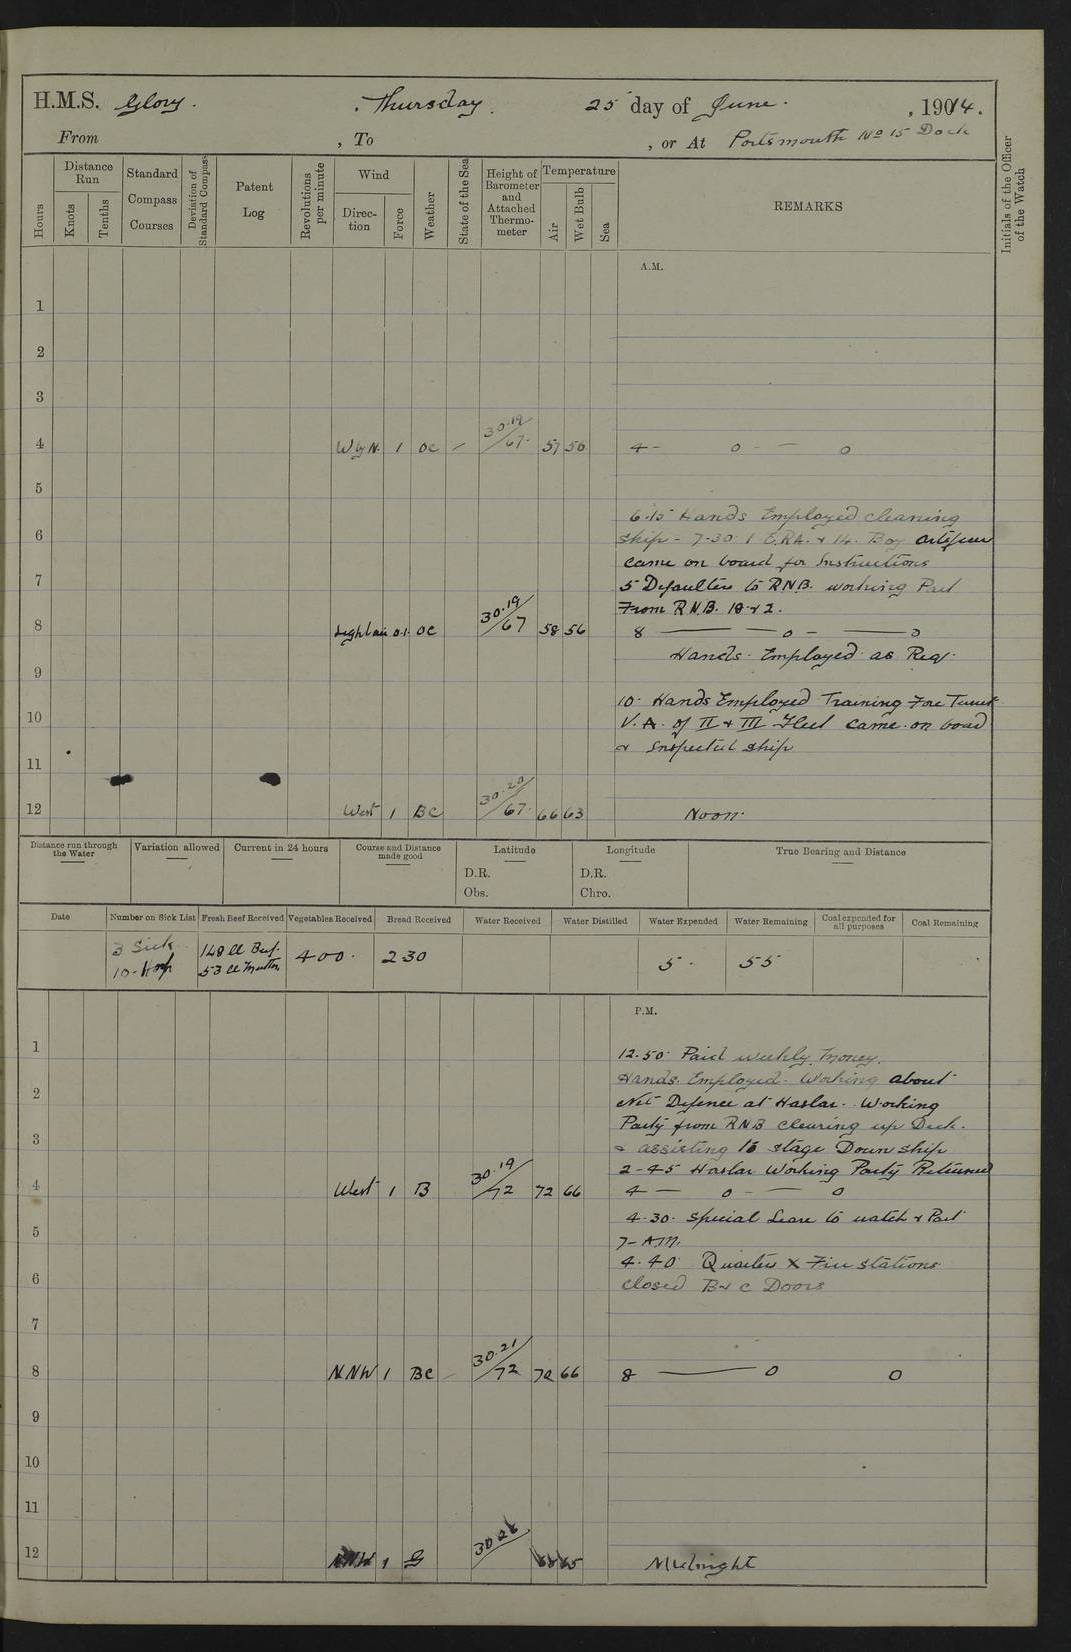 H.M.S. Glory. , Thursday. 25 day of June. , 19014.
From , To , or At Portsmouth No 15 Dock
Hours
Distance Run
Knots
Tenths
Standard Compass Courses
Deviation of Standard Compass
Patent Log
Revolutions per minute
Wind
Direction
Force
Weather
State of the Sea
Height of Barometer and Attached Thermometer
Temperature
Air
Wet Bulb
Sea
REMARKS
Initials of the Officer of the Watch
A.M.
1
2
3
4 W by N. 1 OC 30.19/67. 57 56 4 - o - o
5
6.15 Hands Employed cleaning
6 ship - 7-30. 1 E.R.A. & 14. Boy Artificer
came on board for Instructions
7 5 Defaulters to R.N.B. working Part
From R.N.B. 18 & 2.
8 Light air 0.1. OC 30.19/67 58 56 8 - o - o
Hands. Employed as Req.
9
10. Hands Employed Training Fore Turret
10 V.A. of II & III Fleet came on board
& Inspected ship
11
12 West 1 BC 30.20/67. 66 63 Noon.
Distance run through the Water
Variation allowed
Current in 24 hours
Course and Distance made good
Latitude
D.R.
Obs.
Longitude
D.R.
Chro.
True Bearing and Distance
Date
Number on Sick List
Fresh Beef Received
Vegetables Received
Bread Received
Water Received
Water Distilled
Water Expended
Water Remaining
Coal expended for all purposes
Coal Remaining
3 Sick 148 lb Beef. 400. 230 5. 55
10. Hosp 53 lb Mutton
P.M.
1 12.50 Paid weekly money.
Hands. Employed. Working about
2 Net Defence at Haslar. Working
Party from RNB clearing up Deck.
3 & assisting to stage Down ship
2-45 Haslar Working Party Returned
4 West 1 B 30.19/72 72 66 4 - o - o
4.30. Special Leave to watch & Part
5 7-AM.
4.40 Quarters & Fire stations
6 closed B & C Doors
7
8 NNW 1 BC 30.21/72 70 66 8 - o o
9
10
11
12 NNW 1 65 Midnight